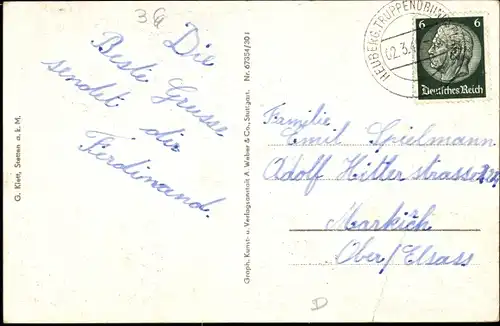 36
Die
Beste Grüsse
sendet dir
Ferdinand.
G. Klett, Stetten a. k. M.
Graph. Kunst- u. Verlagsanstalt A. Weber & Co., Stuttgart. Nr. 67354/301
HEUBERG, TRUPPENÜBUN
02.3.4
6 6
Deutsches Reich
Familie
Emil Spielmann
Adolf Hitlerstrasse
Markich
Ober/Elsass
D